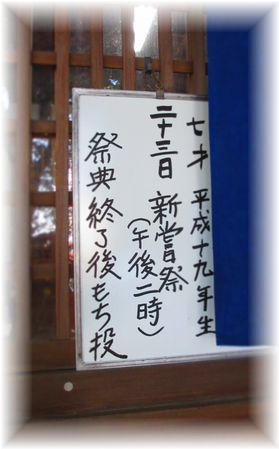 七才 平成十九年生
二十三日 新嘗祭
(午後二時)
祭典終了後もち投